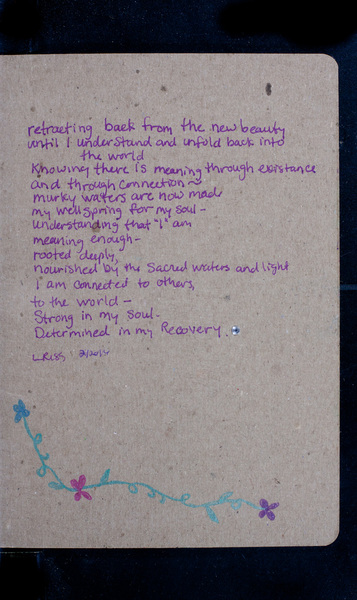 retracting back from the new beauty
until I understand and unfold back into
the world
Knowing there is meaning through existance
and through connection ~
murky waters are now made
my wellspring for my soul -
understanding that "I" am
meaning enough -
rooted deeply,
nourished by the Sacred waters and light
i am connected to others,
to the world -
Strong in my soul -
Determined in my Recovery.